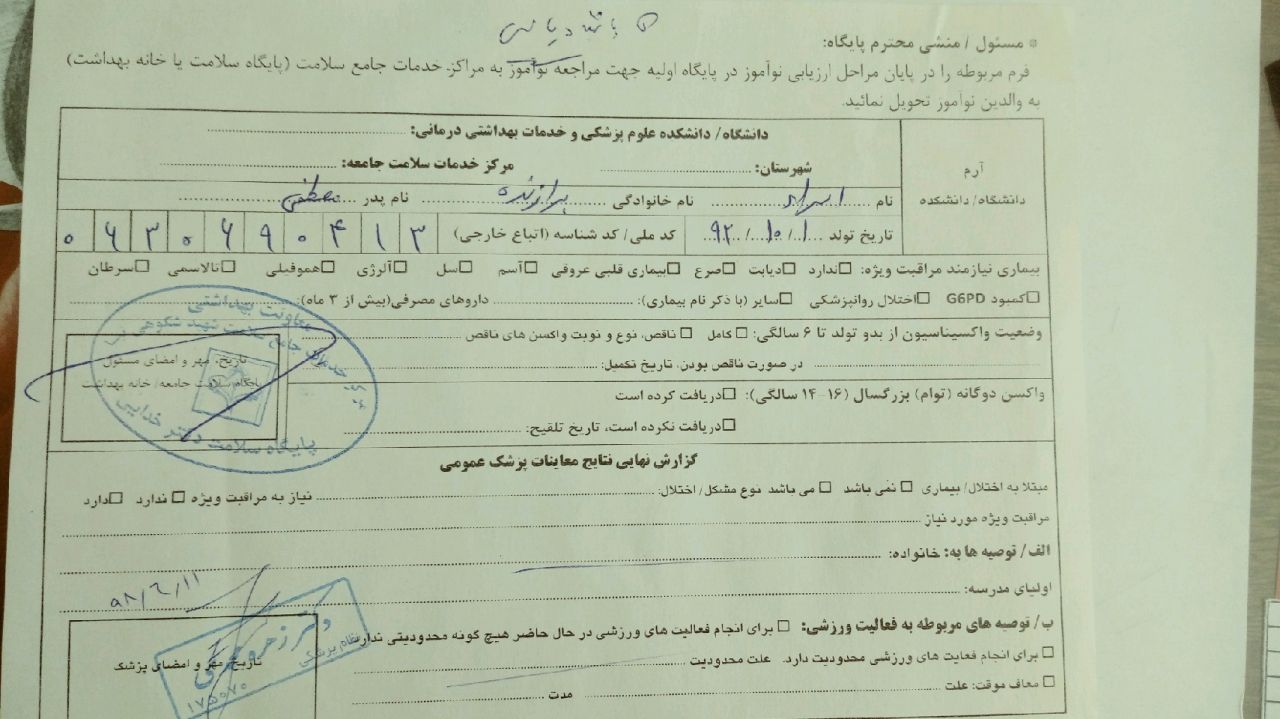 * مسئول / منشی محترم پایگاه:
فرم مربوطه را در پایان مراحل ارزیابی نوآموز در پایگاه اولیه جهت مراجعه نوآموز به مراکز خدمات جامع سلامت (پایگاه سلامت یا خانه بهداشت)
به والدین نوآموز تحویل نمائید.
آرم
دانشگاه/ دانشکده
دانشگاه/ دانشکده علوم پزشکی و خدمات بهداشتی درمانی:
شهرستان: مرکز خدمات سلامت جامعه:
نام نام خانوادگی برازنده نام پدر مصطفی
تاریخ تولد ۱/ ۱۰/ ۹۲ کد ملی/ کد شناسه (اتباع خارجی)
بیماری نیازمند مراقبت ویژه: □ندارد □دیابت □صرع □بیماری قلبی عروقی □آسم □سل □آلرژی □هموفیلی □تالاسمی □سرطان
□کمبود G6PD □اختلال روانپزشکی □سایر (با ذکر نام بیماری): داروهای مصرفی(بیش از ۳ ماه):
وضعیت واکسیناسیون از بدو تولد تا ۶ سالگی: □ کامل □ ناقص، نوع و نوبت واکسن های ناقص
در صورت ناقص بودن، تاریخ تکمیل:
واکسن دوگانه (توام) بزرگسال (۱۶-۱۴ سالگی): □دریافت کرده است
□دریافت نکرده است، تاریخ تلقیح:
تاریخ، مهر و امضای مسئول
پایگاه سلامت جامعه/ خانه بهداشت
معاونت بهداشتی
پایگاه سلامت دکتر خدایی
گزارش نهایی نتایج معاینات پزشک عمومی
مبتلا به اختلال/ بیماری □ نمی باشد □ می باشد نوع مشکل/ اختلال: نیاز به مراقبت ویژه □ ندارد □دارد
مراقبت ویژه مورد نیاز
الف/ توصیه ها به: خانواده:
اولیای مدرسه:
ب/ توصیه های مربوطه به فعالیت ورزشی: □ برای انجام فعالیت های ورزشی در حال حاضر هیچ گونه محدودیتی ندارد
□ برای انجام فعایت های ورزشی محدودیت دارد. علت محدودیت
□ معاف موقت: علت مدت
۹۸/۶/۱۱
تاریخ، مهر و امضای پزشک
نظام پزشکی
۱۷۵۰۷۰